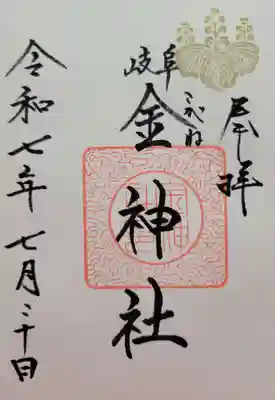 奉拝
岐阜
こがね
金神社
令和七年七月三十日